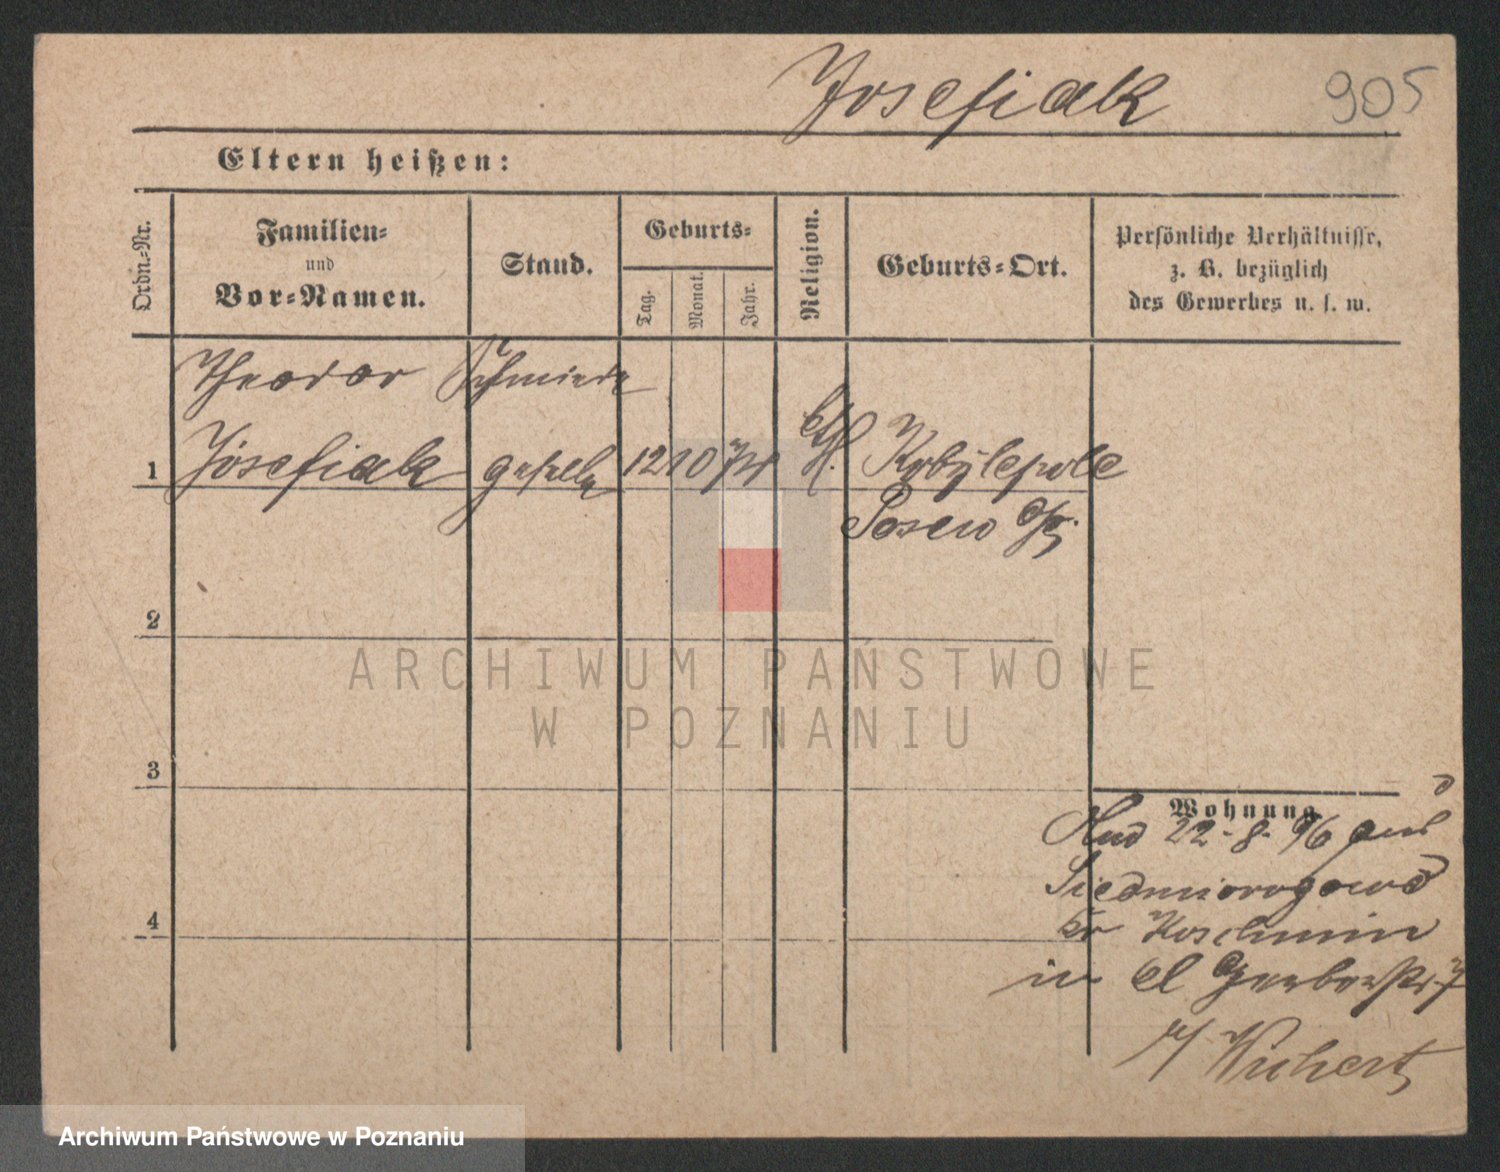 Josefiak 905
Eltern heißen:
Ordn.-Nr.
Familien-
und
Vor-Namen.
Stand.
Geburts-
Tag.
Monat.
Jahr.
Religion.
Geburts-Ort.
Persönliche Verhältnisse,
z. B. bezüglich
des Gewerbes u. s. w.
Theodor Schmiede
1 Josefiak geselle 12 10 74 kth. Kobylepole
Posen
2
3
4
Wohnung
22-8-96 aus
Siedmiorogowo
Kr Koschmin
in Kl Gerberstr 7
b/ Wichert
ARCHIWUM PAŃSTWOWE
W POZNANIU
Archiwum Państwowe w Poznaniu